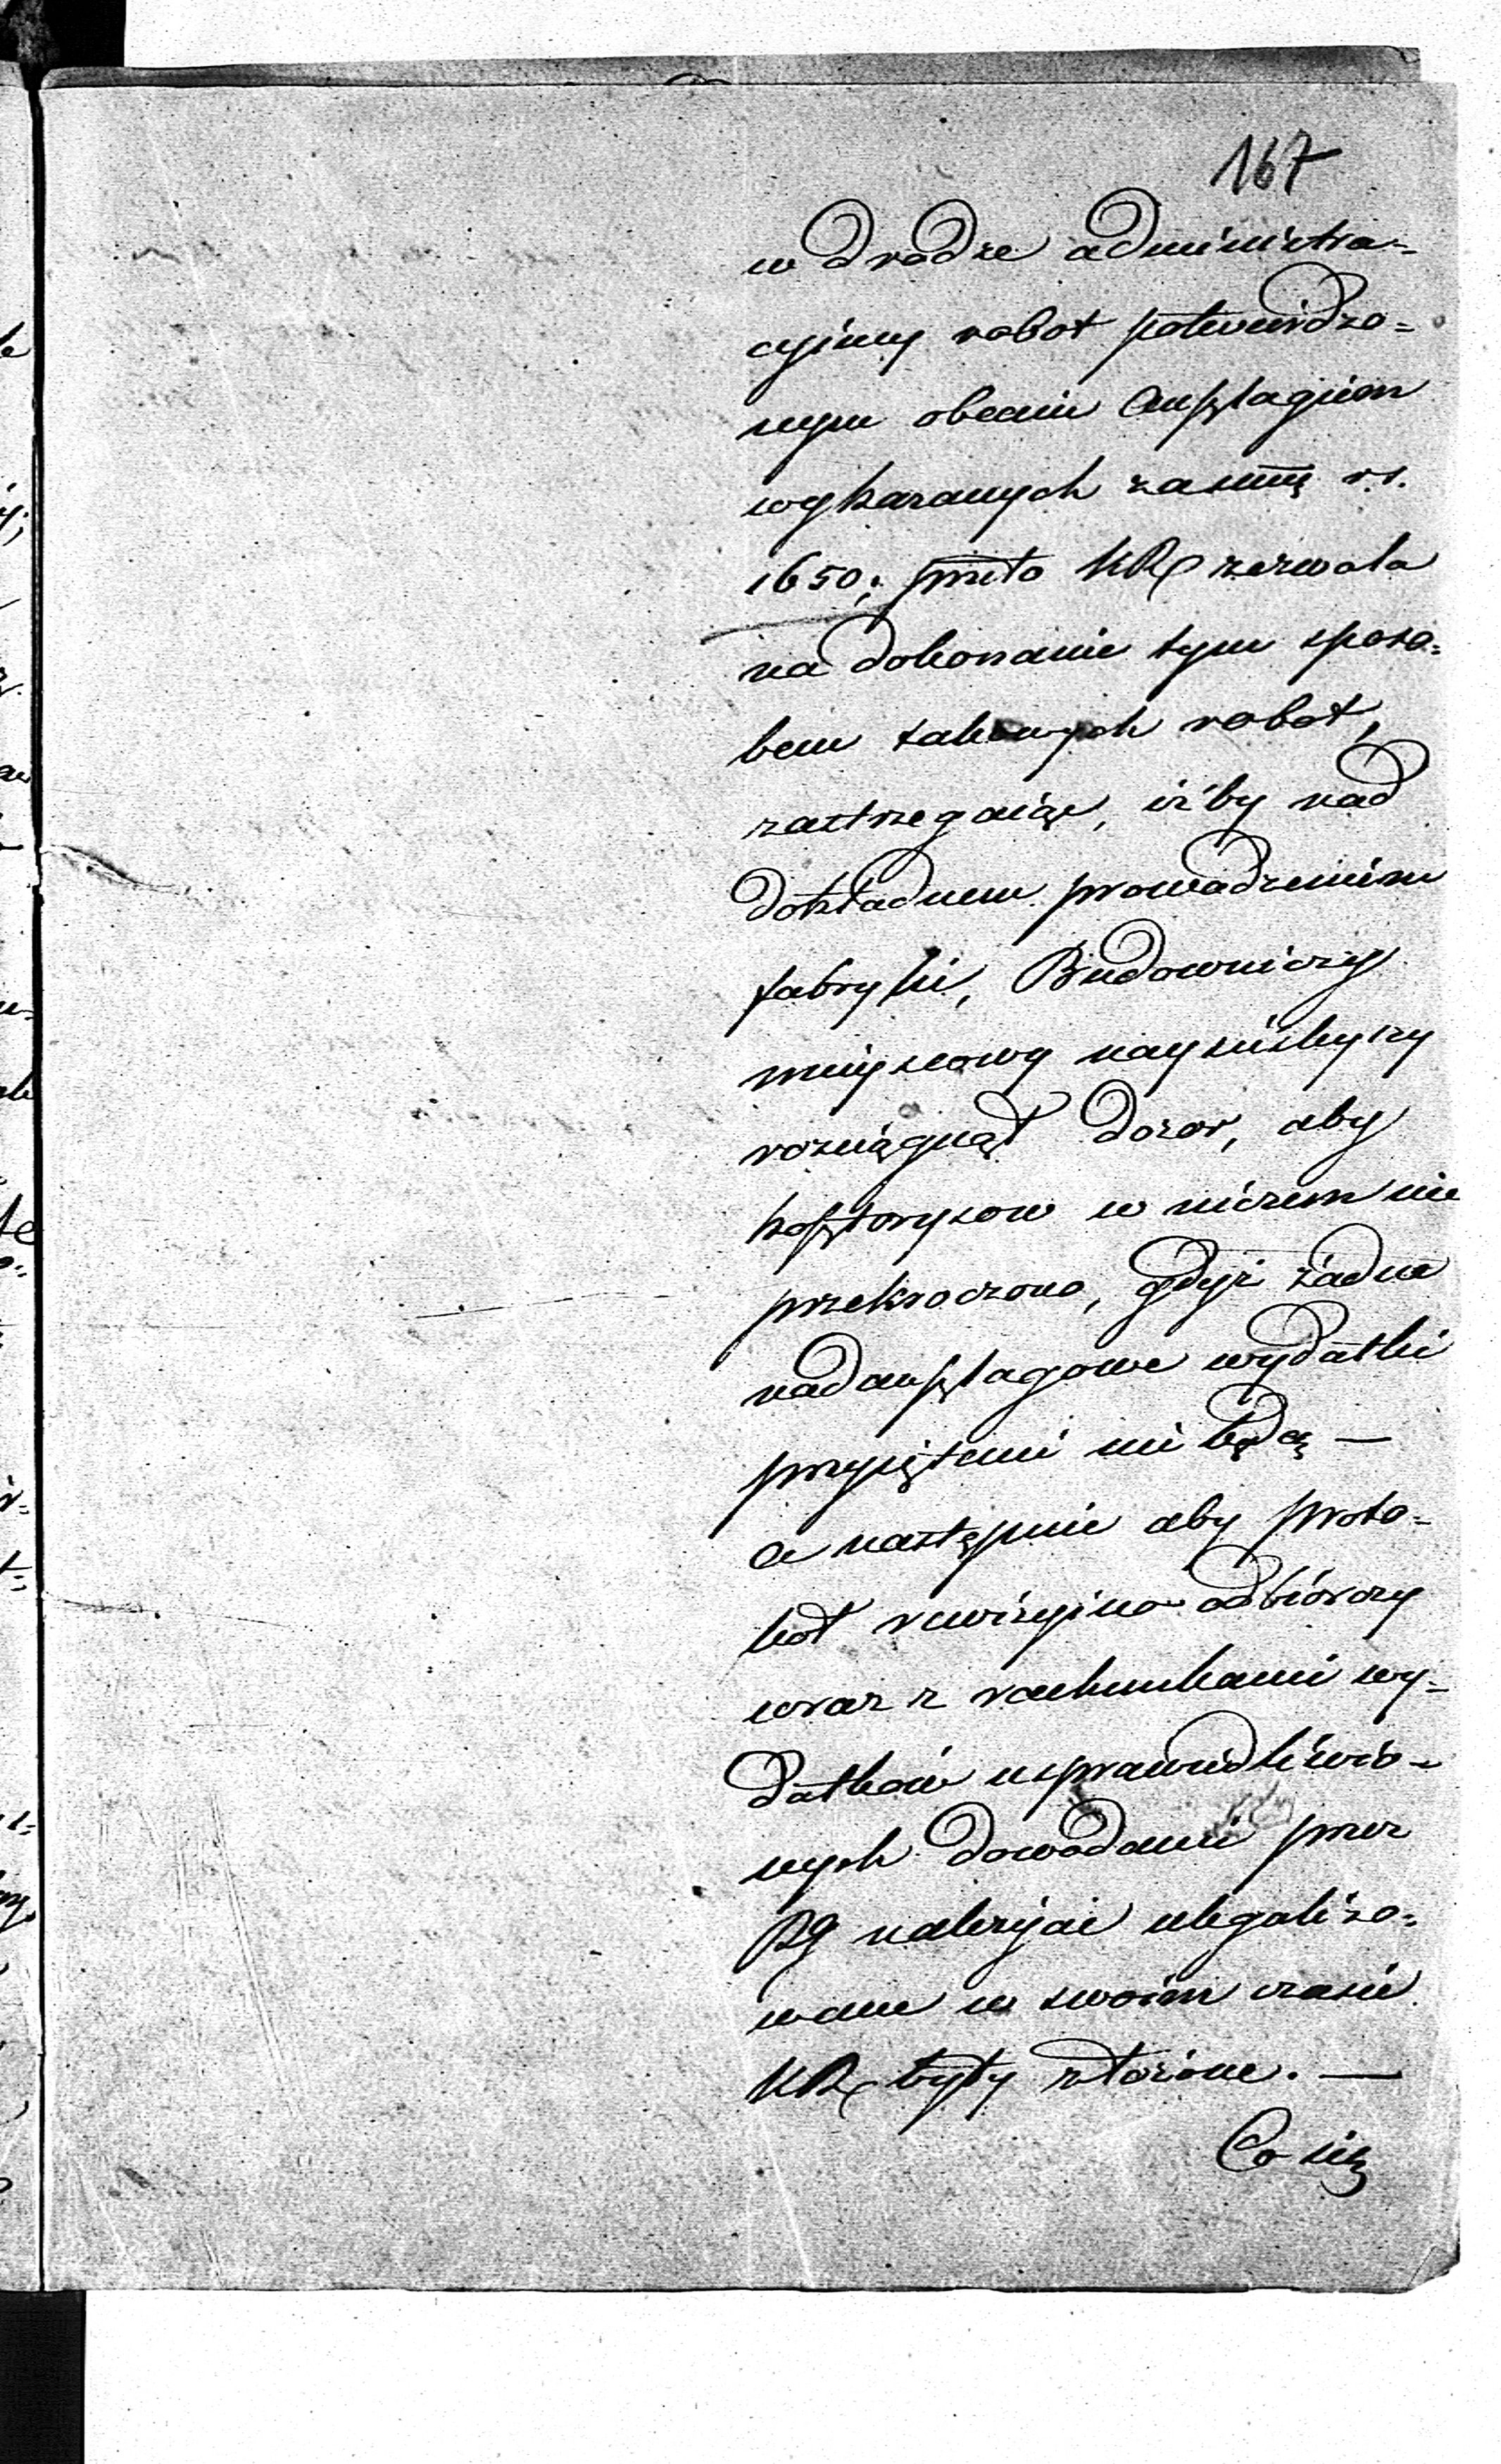 167
w drodze administra=
cyjney robot potwierdzo=
nym obecnie Anszlagiem
wykazanych za summę r.s.
1650; przeto KR zezwala
na dokonanie tym sposo=
bem takowych robot,
zastrzegaiąc, iżby nad
dokładnem prowadzeniem
fabryki, Budowniczy
mieyscowy nayściśleyszy
rozciągnął dozor, aby
kosztorysow w niczem nie
przekroczono, gdyż żadne
nadanszlagowe wydatki
przyiętemi nie będą —
a następnie aby proto=
koł rewizyino odbiorczy
wraz z rachunkami wy=
datków usprawiedliwio=
nych dowodami przez
RG należycie ulegalizo=
wane w swoim czasie
KR były złożone. —
Co się